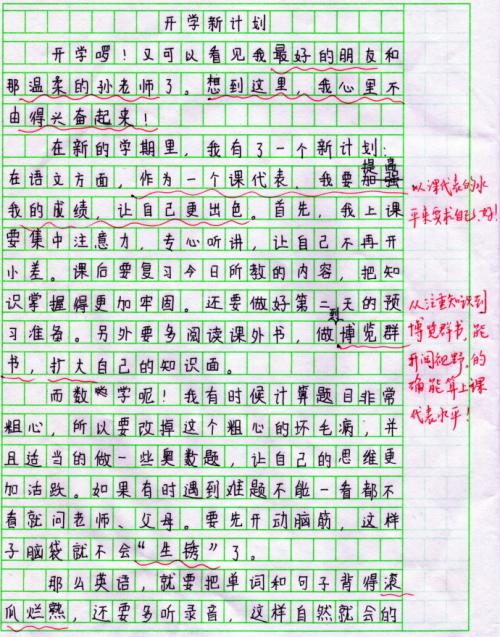 开学新计划
开学啰！又可以看见我最好的朋友和
那温柔的孙老师了。想到这里，我心里不
由得兴奋起来！
在新的学期里，我有了一个新计划：
在语文方面，作为一个课代表，我要加强
提高
我的成绩，让自己更出色。首先，我上课
要集中注意力，专心听讲，让自己不再开
小差。课后要复习今日所教的内容，把知
识掌握得更加牢固。还要做好第二天的预
习准备。另外要多阅读课外书，做到博览群
书，扩大自己的知识面。
而数学呢！我有时候计算题目非常
粗心，所以要改掉这个粗心的坏毛病，并
且适当的做一些奥数题，让自己的思维更
加活跃。如果有时遇到难题不能一看都不
看就问老师、父母。要先开动脑筋，这样
子脑袋就不会“生锈”了。
那么英语，就要把单词和句子背得滚
瓜烂熟，还要多听录音，这样自然就会的
以课代表的水
平来要求自己，好！
从注重知识到
博览群书，能
开阔视野，的
确能算上课
代表水平！